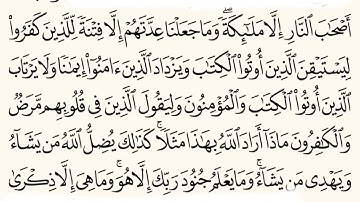 أَصْحَٰبَ ٱلنَّارِ إِلَّا مَلَـٰٓئِكَةً ۖ وَمَا جَعَلْنَا عِدَّتَهُمْ إِلَّا فِتْنَةً لِّلَّذِينَ كَفَرُوا۟
لِيَسْتَيْقِنَ ٱلَّذِينَ أُوتُوا۟ ٱلْكِتَٰبَ وَيَزْدَادَ ٱلَّذِينَ ءَامَنُوٓا۟ إِيمَٰنًا وَلَا يَرْتَابَ
ٱلَّذِينَ أُوتُوا۟ ٱلْكِتَٰبَ وَٱلْمُؤْمِنُونَ وَلِيَقُولَ ٱلَّذِينَ فِى قُلُوبِهِم مَّرَضٌ
وَٱلْكَٰفِرُونَ مَاذَآ أَرَادَ ٱللَّهُ بِهَٰذَا مَثَلًا ۚ كَذَٰلِكَ يُضِلُّ ٱللَّهُ مَن يَشَآءُ
وَيَهْدِى مَن يَشَآءُ ۚ وَمَا يَعْلَمُ جُنُودَ رَبِّكَ إِلَّا هُوَ ۚ وَمَا هِىَ إِلَّا ذِكْرَىٰ